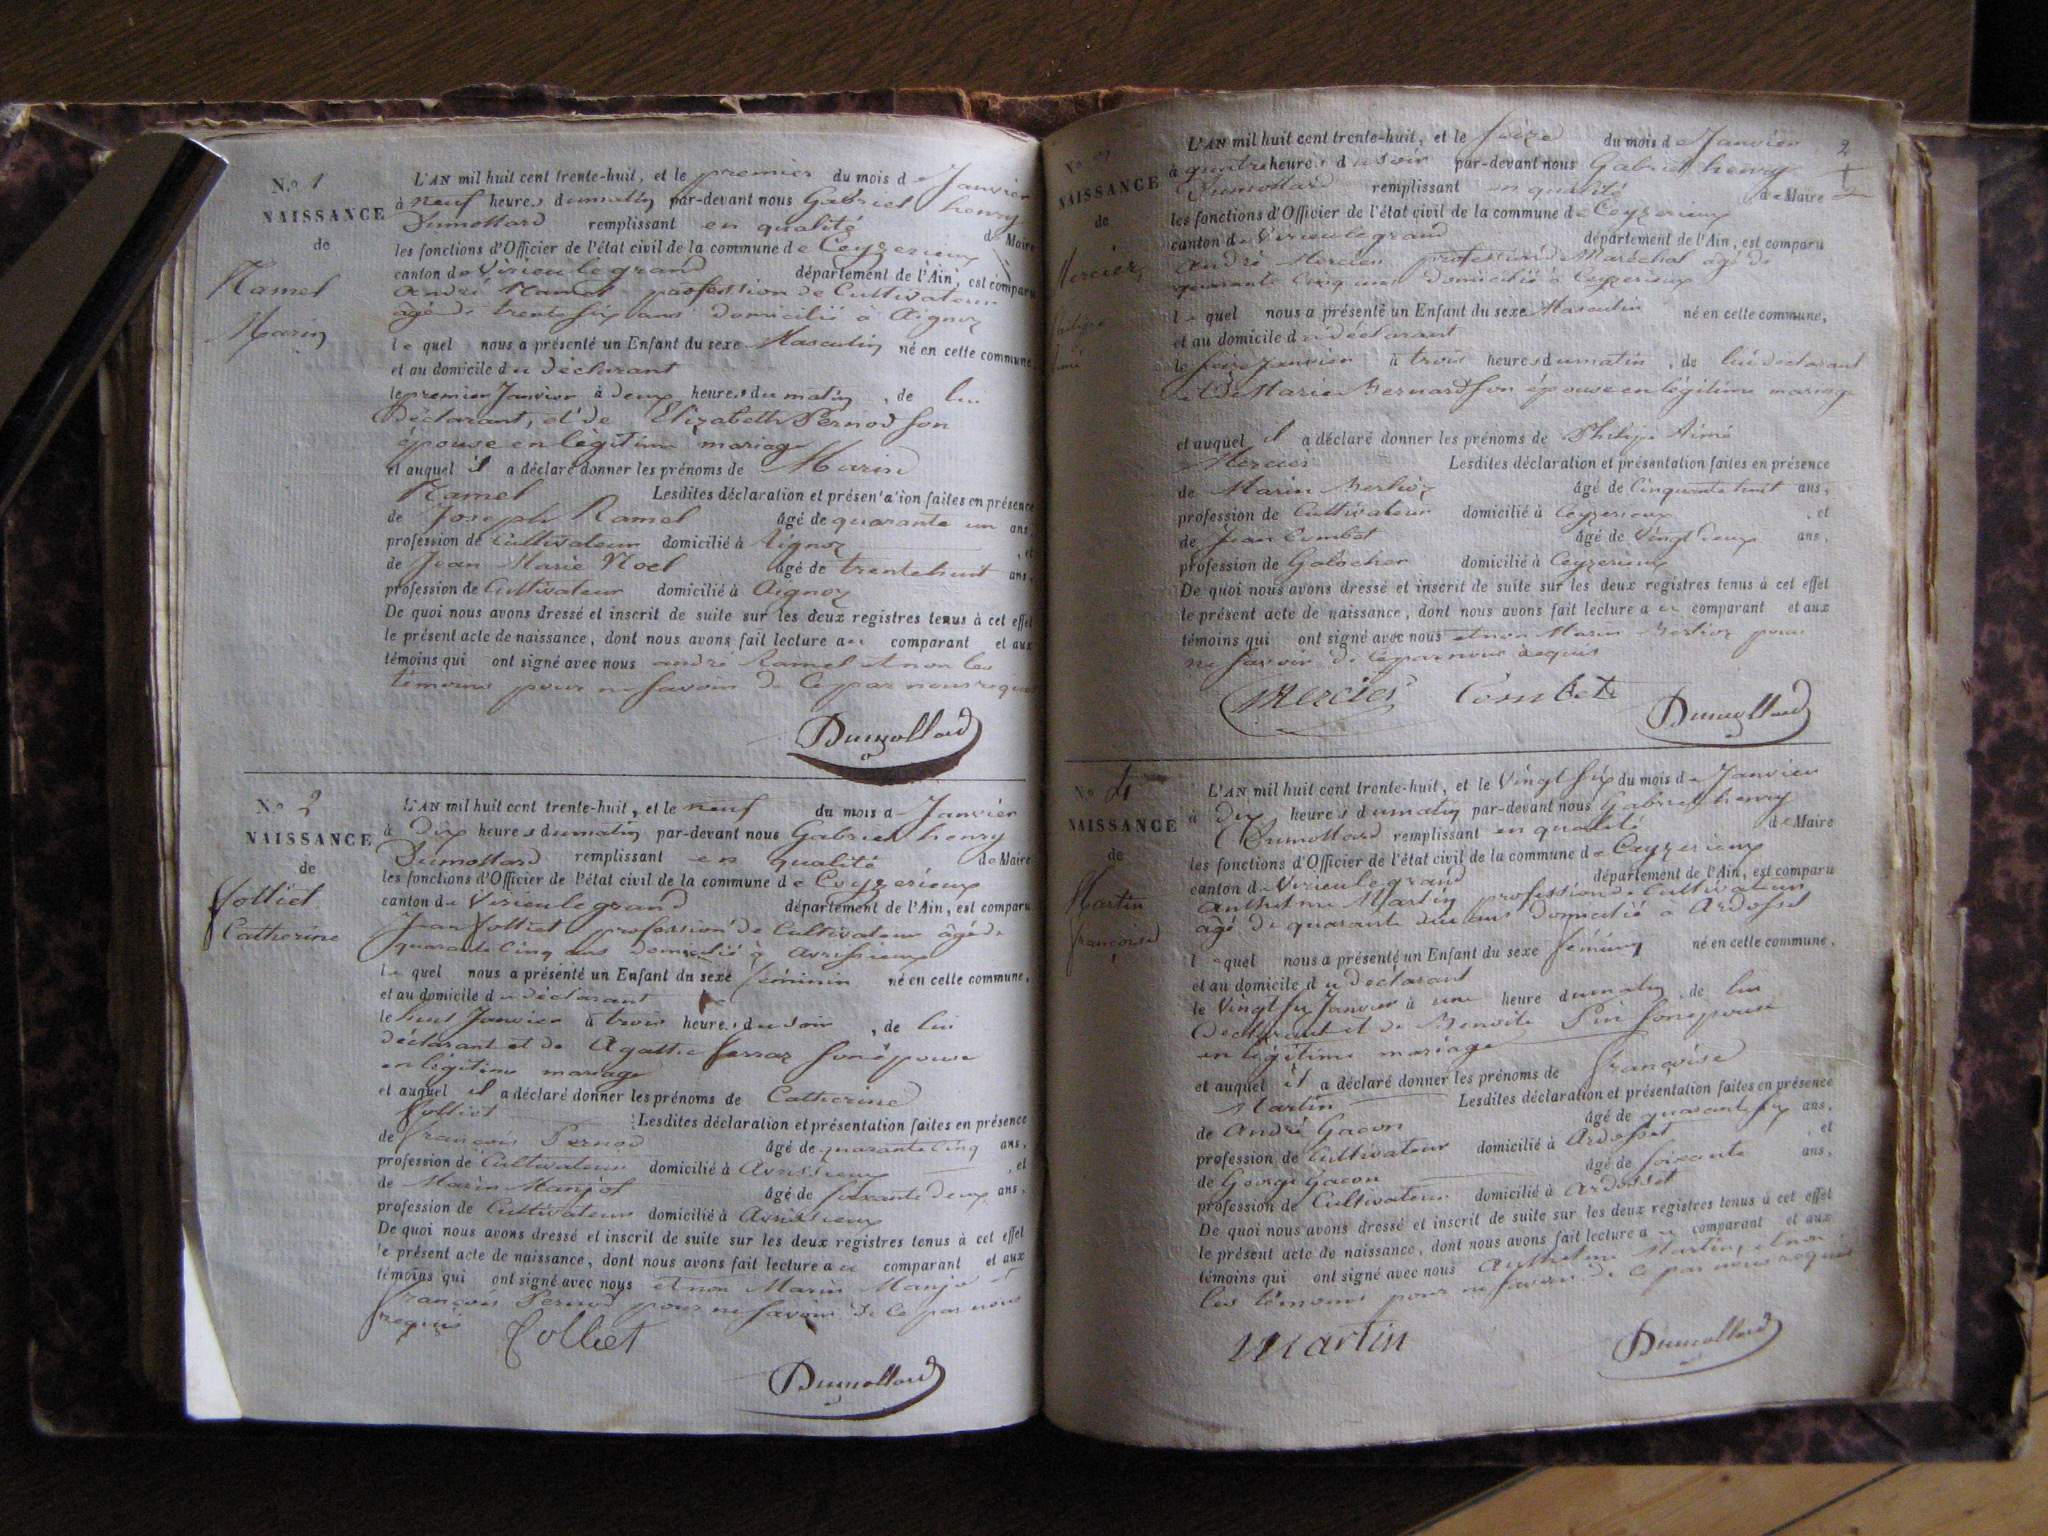 N.o 1
NAISSANCE
de
Ramel
Marin
L'AN mil huit cent trente-huit, et le premier du mois de Janvier
à neuf heures du matin par-devant nous Gabriel henry
Dumollard remplissant en qualité de Maire
les fonctions d'Officier de l'état civil de la commune de Ceyzerieux
canton de Virieulegrand département de l'Ain, est comparu
andré Ramel profession de Cultivateur
âgé de trente six ans domicilié à Aignoz
lequel nous a présenté un Enfant du sexe Masculin né en cette commune,
et au domicile du déclarant
le premier Janvier à deux heures du matin, de lui
déclarant, et de Elizabeth Pernod son
épouse en légitime mariage
et auquel il a déclaré donner les prénoms de Marin
Ramel Lesdites déclaration et présen'a'ion faites en présence
de Joseph Ramel âgé de quarante un ans
profession de Cultivateur domicilié à Aignoz , et
de Jean Marie Noel âgé de trentehuit ans,
profession de Cultivateur domicilié à Aignoz
De quoi nous avons dressé et inscrit de suite sur les deux registres tenus à cet effet
le présent acte de naissance, dont nous avons fait lecture au comparant et aux
témoins qui ont signé avec nous andré Ramel et non les
témoins pour ne savoir de ce par nous requis
Dumollard
N.o 2
NAISSANCE
de
Jolliet
Catherine
L'AN mil huit cent trente-huit, et le neuf du mois d Janvier
à Dix heures du matin par-devant nous Gabriel henry
Dumollard remplissant en qualité de Maire
les fonctions d'Officier de l'état civil de la commune de Ceyzerieux
canton de Virieulegrand département de l'Ain, est comparu
Jean Jolliet profession de Cultivateur âgé de
quarante Cinq ans domicilié à Avrissieux
lequel nous a présenté un Enfant du sexe féminin né en cette commune,
et au domicile du déclarant
le huit Janvier à trois heures du soir, de lui
déclarant et de Agathe Ferraz son épouse
en légitime mariage
et auquel il a déclaré donner les prénoms de Catherine
Jolliet Lesdites déclaration et présentation faites en présence
de françois Pernod âgé de quarante Cinq ans,
profession de Cultivateur domicilié à Avrissieux , et
de Marin Manjot âgé de soixante deux ans,
profession de Cultivateur domicilié à Avrissieux
De quoi nous avons dressé et inscrit de suite sur les deux registres tenus à cet effet
le présent acte de naissance, dont nous avons fait lecture au comparant et aux
témoins qui ont signé avec nous et non Marin Manjot et
françois Pernod pour ne savoir de ce par nous
requis
Jolliet
Dumollard
2
NAISSANCE
de
Mercier
L'AN mil huit cent trente-huit, et le seize du mois de Janvier
à quatre heures du soir par-devant nous Gabriel henry
Dumollard remplissant en qualité de Maire
les fonctions d'Officier de l'état civil de la commune de Ceyzerieux
canton de Virieulegrand département de l'Ain, est comparu
André Mercier profession de Maréchal âgé de
quarante Cinq ans domicilié à Ceyzerieux
lequel nous a présenté un Enfant du sexe Masculin né en cette commune,
et au domicile du déclarant
le seize Janvier à trois heures du matin, de lui déclarant
et de Marie Bernard son épouse en légitime mariage
et auquel il a déclaré donner les prénoms de Philipe Aimé
Mercier Lesdites déclaration et présentation faites en présence
de Marin Berlioz âgé de Cinquante huit ans,
profession de Cultivateur domicilié à Ceyzerieux , et
de Jean Combet âgé de Vingt deux ans,
profession de Galocher domicilié à Ceyzerieux
De quoi nous avons dressé et inscrit de suite sur les deux registres tenus à cet effet
le présent acte de naissance, dont nous avons fait lecture au comparant et aux
témoins qui ont signé avec nous et non Marin Berlioz pour
ne savoir de ce par nous requis
Mercier Combet Dumollard
N.o 4
NAISSANCE
de
Martin
françoise
L'AN mil huit cent trente-huit, et le Vingt six du mois de Janvier
à Dix heures du matin par-devant nous Gabriel henry
Dumollard remplissant en qualité de Maire
les fonctions d'Officier de l'état civil de la commune de Ceyzerieux
canton de Virieulegrand département de l'Ain, est comparu
Anthelme Martin profession de Cultivateur
âgé de quarante deux ans domicilié à Ardosset
lequel nous a présenté un Enfant du sexe féminin né en cette commune,
et au domicile du déclarant
le Vingt six Janvier à une heure du matin, de lui
Déclarant et de Benoite Pin son épouse
en légitime mariage
et auquel il a déclaré donner les prénoms de françoise
Martin Lesdites déclaration et présentation faites en présence
de André Gacon âgé de quarante six ans,
profession de Cultivateur domicilié à Ardosset , et
de George Gacon âgé de soixante ans,
profession de Cultivateur domicilié à Ardosset
De quoi nous avons dressé et inscrit de suite sur les deux registres tenus à cet effet
le présent acte de naissance, dont nous avons fait lecture au comparant et aux
témoins qui ont signé avec nous Anthelme Martin, et non
les témoins pour ne savoir de ce par nous requis
Martin
Dumollard